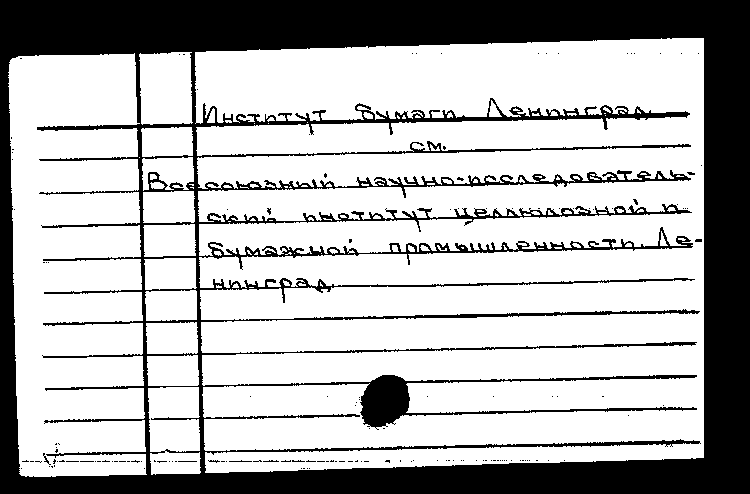 Институт бумаги. Ленинград
см.
Всесоюзный научно-последователь-
ский институт целлюлозной и
бумажной промышленности. Ле-
нинград